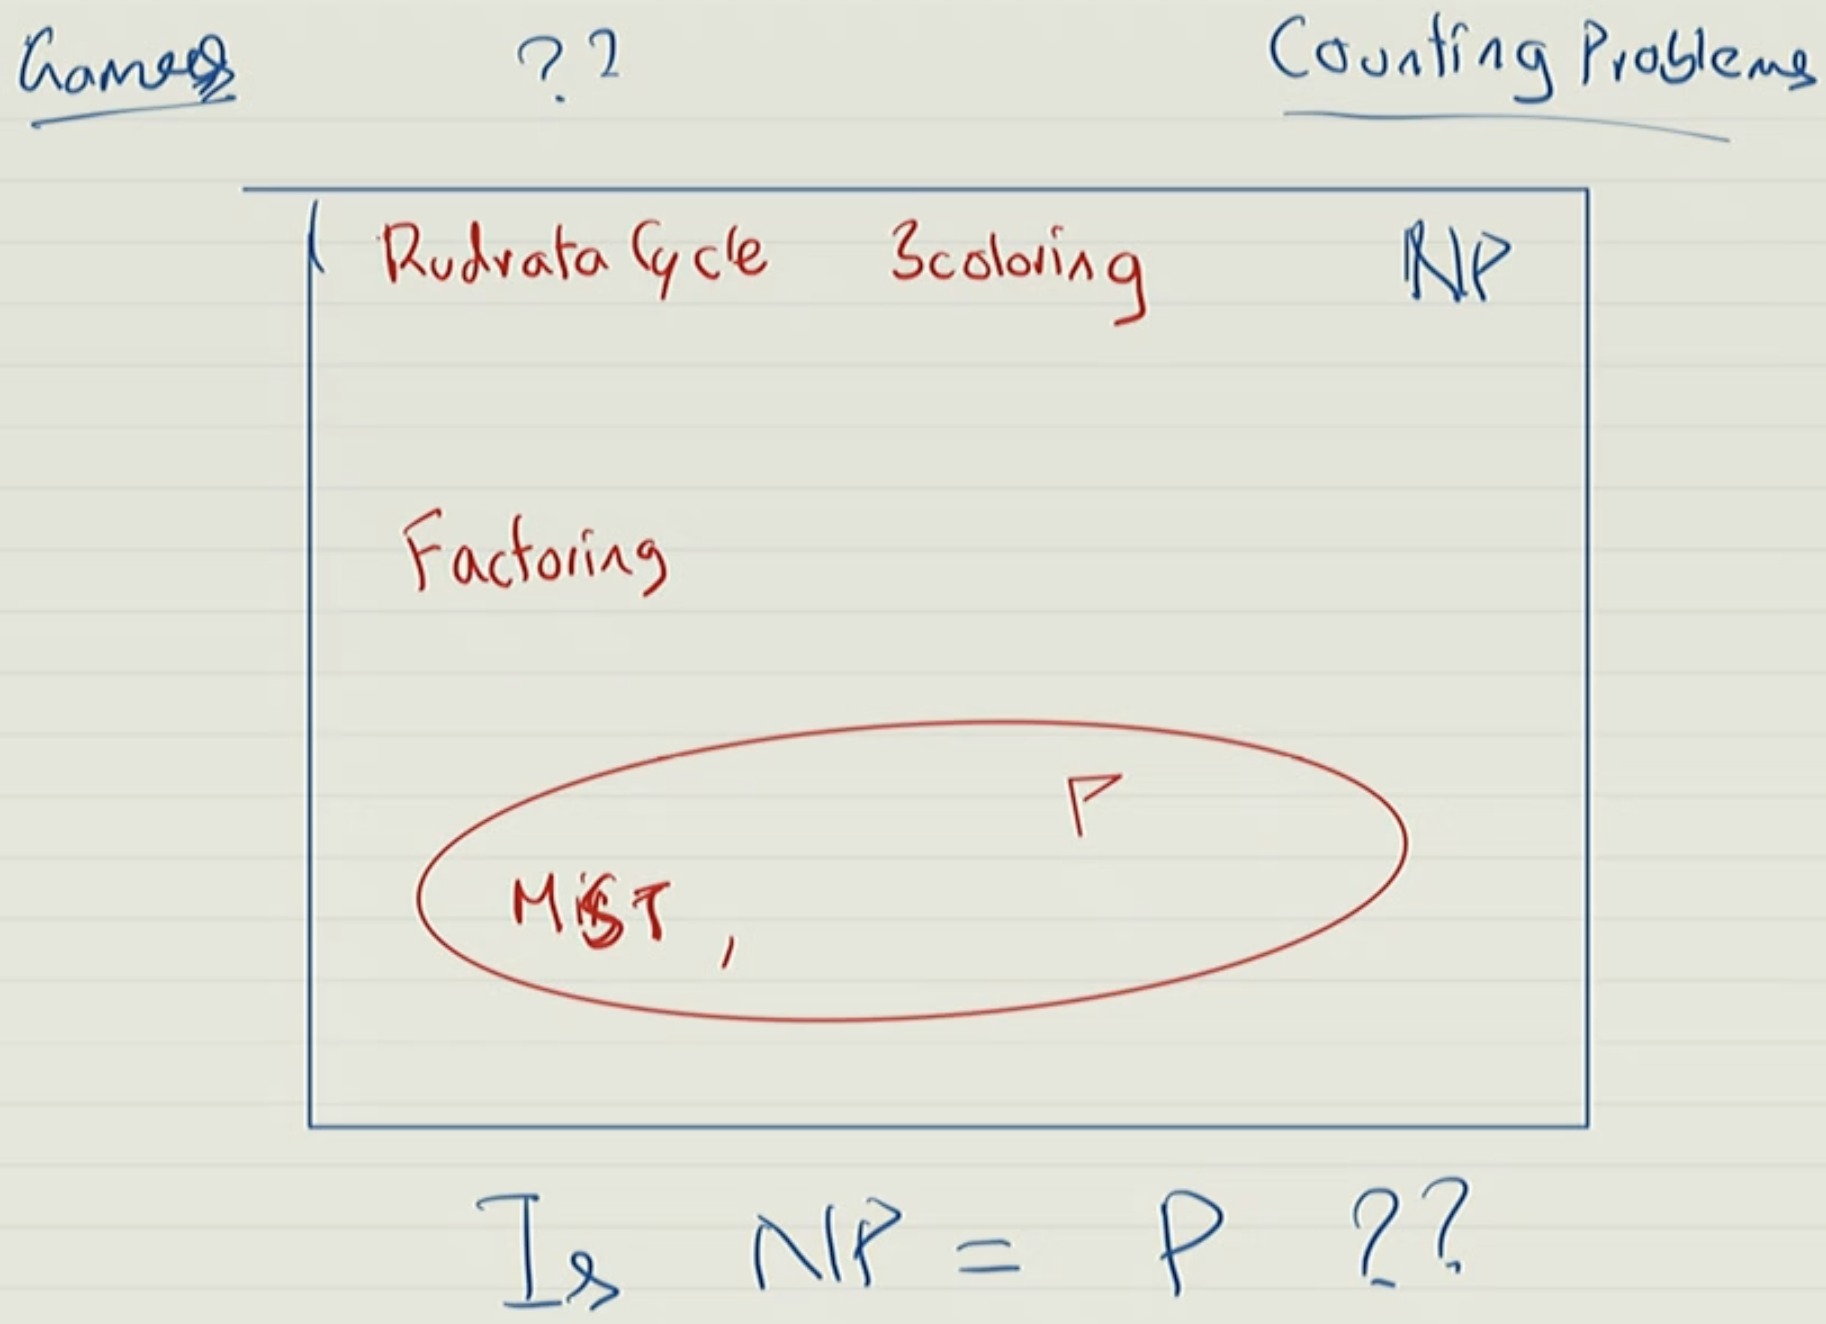 Games ?? Counting Problems
Rudrata Cycle 3coloring NP
Factoring
P
MST,
Is NP = P ??